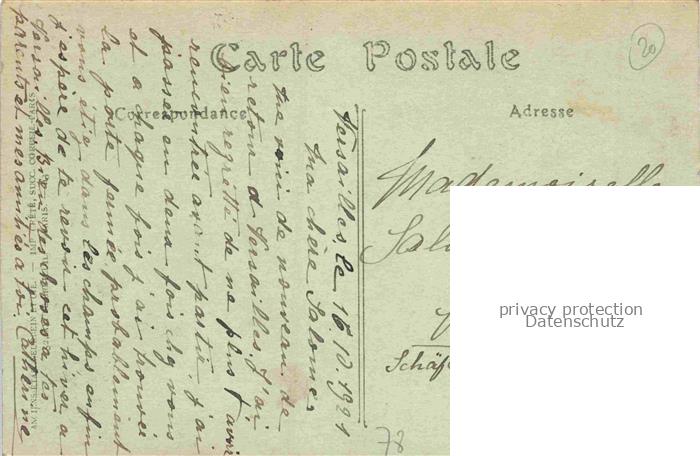 Carte Postale
20
Correspondance
Adresse
Versailles le 16.10.1921
Ma chère Salomé,
Me voici de nouveau de
retour à Versailles, j'ai
bien regretté de ne plus t'avoir
rencontrée avant partir, j'ai
passée en deux fois chez vous
et a chaque fois j'ai trouvée
la porte fermée probablement
vous étiez dans les champs enfin
j'espère de te revoir cet hiver a
Versailles. Bien des choses a tes
parents et mes amitiés a toi. Catherine
Mademoiselle
Schäf
78
privacy protection
Datenschutz